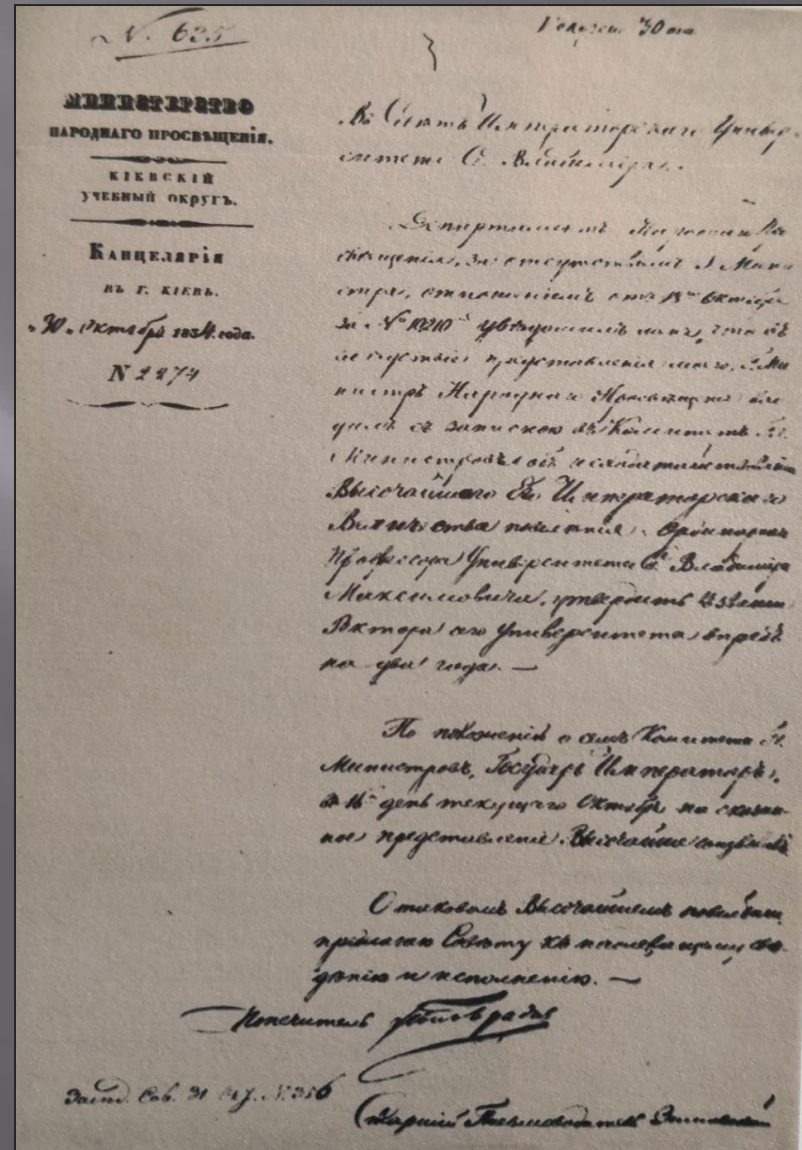 N. 635
Получено 30 окт.
МИНИСТЕРСТВО
НАРОДНАГО ПРОСВѢЩЕНІЯ.
КІЕВСКІЙ
УЧЕБНЫЙ ОКРУГЪ.
КАНЦЕЛЯРІЯ
ВЪ Г. КІЕВѢ.
„30„ Октября 1834 года.
N 2274
Въ Совѣтъ Императорскаго Универ-
ситета Св. Владиміра.
Департаментъ Народнаго Про-
свѣщенія, за отсутствіемъ Г. Мини-
стра, отношеніемъ отъ 18го Октября
за № 10210 увѣдомилъ меня, что въ
слѣдствіе представленія моего, Г. Ми-
нистръ Народнаго Просвѣщенія вхо-
дилъ съ запискою въ Комитетъ Гг.
Министровъ объ исходатайствованіи
Высочайшаго Его Императорскаго
Величества повелѣнія, Ординарнаго
Профессора Университета Св. Владиміра
Максимовича, утвердить въ званіи
Ректора сего Университета впредь
на два года. —
По положенію о семъ Комитета Гг.
Министровъ, Государь Императоръ,
въ день текущаго Октября на сказан-
ное представленіе Высочайше
О таковомъ Высочайшемъ повелѣніи
предлагаю Совѣту къ надлежащему свѣ-
дѣнію и исполненію. —
Попечитель
Засѣд. Сов. 31 Окт. N. 356
Старшій Письмоводитель